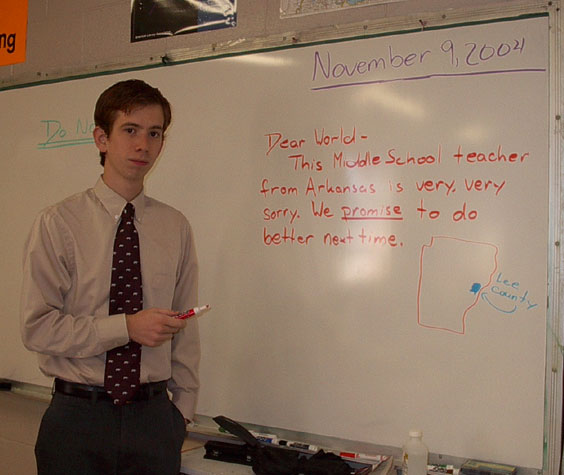 ng
Do No
November 9, 2004
Dear World-
This Middle School teacher
from Arkansas is very, very
sorry. We promise to do
better next time.
Lee
County